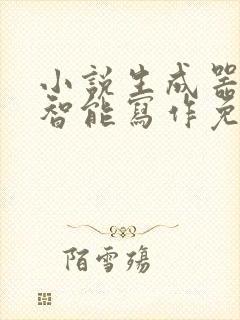 小説生成器
智能寫作免
陌雪殤